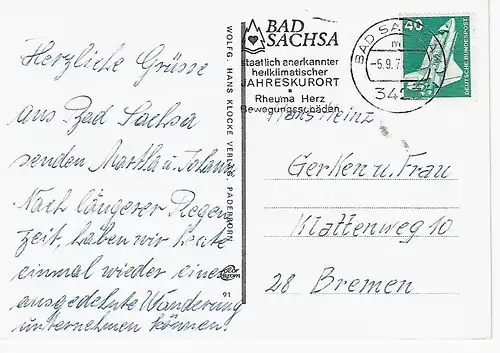 Herzliche Grüsse
aus Bad Sachsa
senden Martha u. Johann.
Nach längerer Regen
zeit, haben wir heute
einmal wieder eine
ausgedehnte Wanderung
unternehmen können.
WOLFG. HANS KLOCKE VERLAG PADERBORN
91
BAD
SACHSA
staatlich anerkannter
heilklimatischer
JAHRESKURORT
Rheuma Herz
Bewegungsschäden
BAD SA
m
-5.9.7
342
40
DEUTSCHE BUNDESPOST
Hans Heinz
Gerken u. Frau
Klattenweg 10
28 Bremen